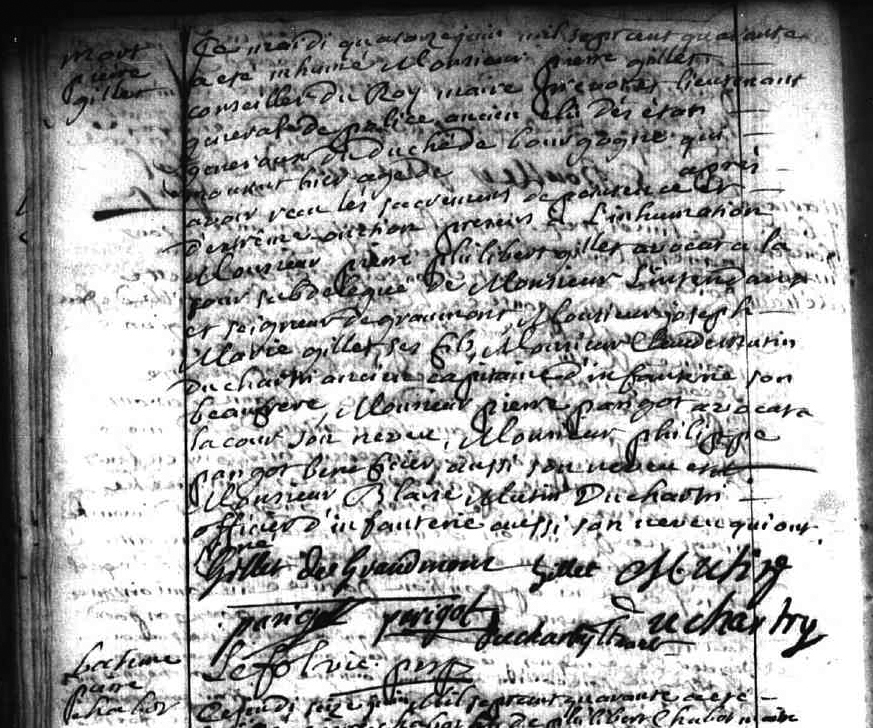 mort
pierre
gillet
Ce mardi quatorze juin mil sept cent quarante
a eté inhumé Monsieur pierre gillet
conseiller du Roy maire prevost lieutenant
general de police ancien elû des etats
generaux du duché de bourgogne qui
mourut hier agé de apres
avoir receu les sacremens de penitence et
d'extrême onction presens a L'inhumation
Monsieur pierre philibert gillet avocat a la
cour subdelegué de Monsieur L'intendant
et seigneur de graumont, Monsieur joseph
Marie gillet, ses fils, Monsieur Claude Mutin
Duchartri ancien capitaine d'infanterie son
beaufrere, Monsieur pierre parigot avocat a
la cour son neveu, Monsieur philippe
parigot aussi son neveu et
Monsieur Blaise Mutin Duchartri
officier d'infanterie aussi son neveu qui ont
signé
Gillet de Grandmont gillet Mutin
parigot parigot Duchartry
Duchartry
Lefol
batême
pierre
Ce jeudi seize juin Mil sept cent quarante a eté
de philibert